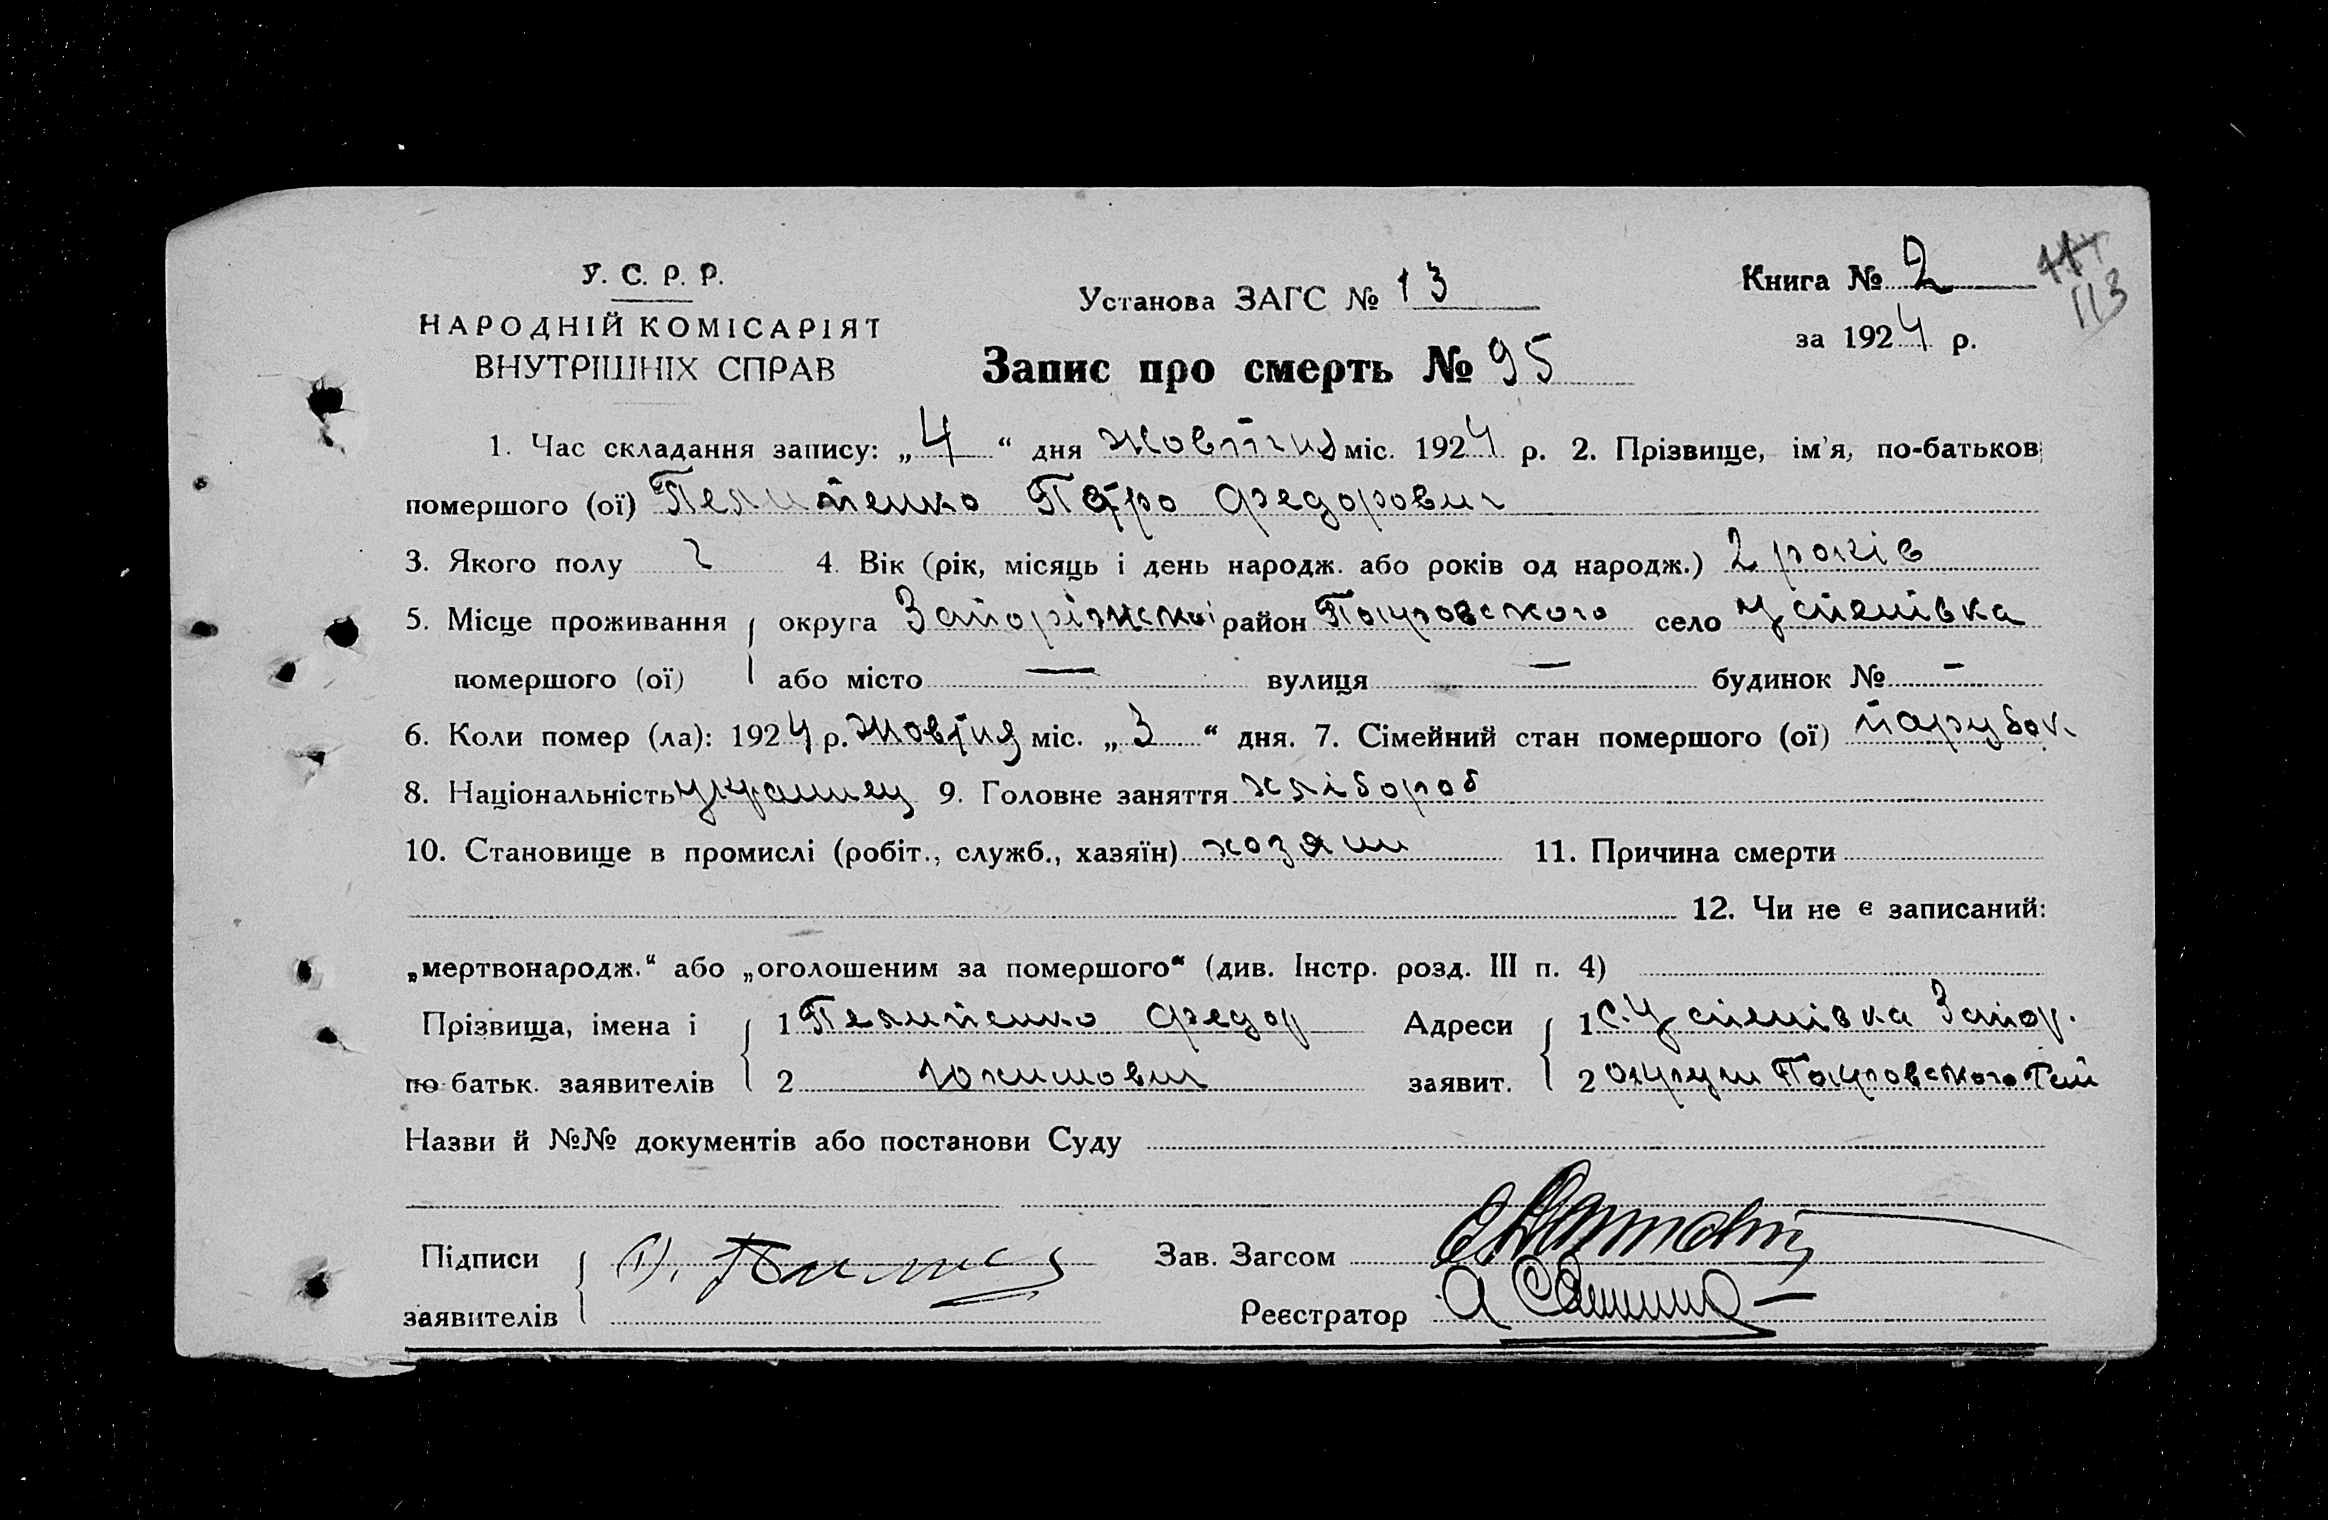 У. С. Р. Р.
НАРОДНІЙ КОМІСАРІЯТ
ВНУТРІШНІХ СПРАВ
Установа ЗАГС № 13
Книга № 2
113
за 1924 р.
Запис про смерть № 95
1. Час складання запису: „4“ дня Жовтня міс. 1924 р. 2. Прізвище, ім'я, по-батькові
помершого (ої) Пелипенко Петро Федорович
3. Якого полу ч 4. Вік (рік, місяць і день народж. або років од народж.) 2 років
5. Місце проживання округа Запоріжской район Покровского село Успенівка
помершого (ої) або місто — вулиця — будинок № —
6. Коли помер (ла): 1924 р. Жовтня міс. „3“ дня. 7. Сімейний стан помершого (ої) парубок
8. Національність украинец 9. Головне заняття хлібороб
10. Становище в промислі (робіт., служб., хазяїн) хозяин 11. Причина смерти
12. Чи не є записаний:
„мертвонародж.“ або „оголошеним за помершого“ (див. Інстр. розд. III п. 4)
Прізвища, імена і 1 Пелипенко Федор Адреси 1 с. Успенівка Запор.
по батьк. заявителів 2 Юхимович заявит. 2 округи Покровского
Назви й №№ документів або постанови Суду
Підписи Зав. Загсом
заявителів Реєстратор